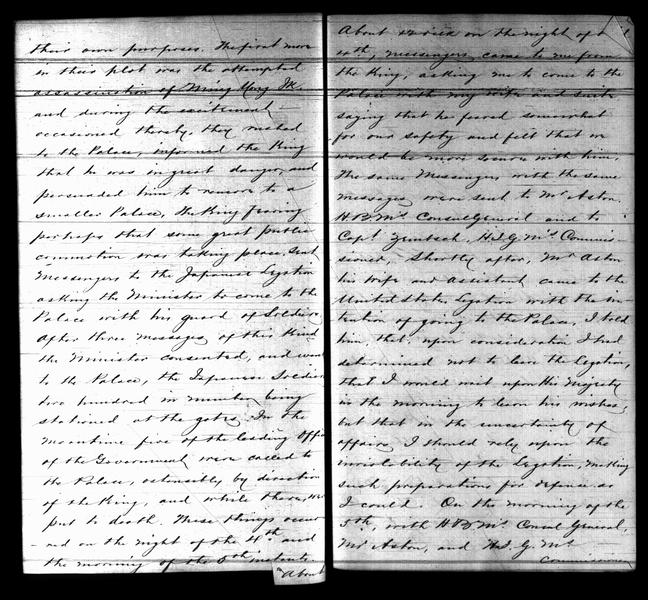 their own purposes. The first move
in their plot was the attempted
assassination of Ming Yong Ik.
and during the excitement
occasioned thereby, they rushed
to the Palace, informed the King
that he was in great danger, and
persuaded him to remove to a
smaller Palace, the King fearing
perhaps that some great public
commotion was taking place, sent
Messengers to the Japanese Legation
asking the Minister to come to the
Palace with his guard of Soldiers
After three messages of this kind
the Minister consented, and went
to the Palace, the Japanese Soldiers
two hundred in number being
stationed at the gates. In the
meantime five of the leading Offic
of the Government were called to
the Palace, ostensibly by direction
of the King, and while there, we
put to death. These things occur
-red on the night of the 4th and
the morning of the 5th instant.
"About
About on the night of
messengers came to me from
the King, asking me to come to the
Palace with my wife and suite
saying that he feared somewhat
for our safety and felt that we
would be more secure with him.
The same Messengers with the same
messages were sent to Mr Aston.
H.B.M's Consul General and to
Capt Zembsch, H.I.G.M's Commis-
sioner, Shortly after, Mr Aston
his wife and assistant came to the
United States Legation with the in-
tention of going to the Palace, I told
him that, upon consideration I had
determined not to leave the Legation,
that I would wait upon His Majesty
in the morning to learn his wishes,
but that in the uncertainty of
affairs, I should rely upon the
inviolability of the Legation, making
such preparations for defense as
I could. On the morning of the
5th, with H.B.M's Consul General,
Mr Aston, and H.I.G.M's
Commissioner